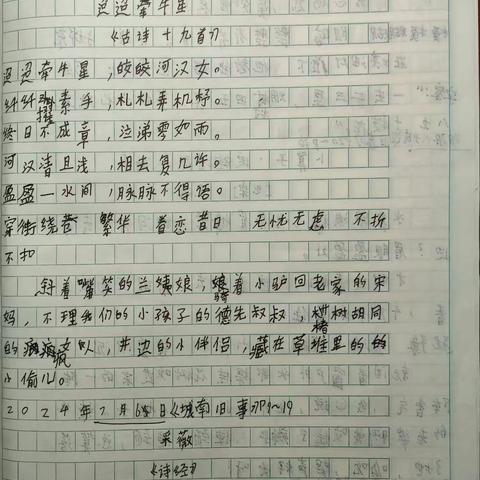 迢迢牵牛星
《古诗十九首》
迢迢牵牛星，皎皎河汉女。
纤纤擢素手，札札弄机杼。
终日不成章，泣涕零如雨。
河汉清且浅，相去复几许。
盈盈一水间，脉脉不得语。
穿街绕巷 繁华 眷恋昔日 无忧无虑 不折
不扣
斜着嘴笑的兰姨娘，骑着小驴回老家的宋
妈，不理我们的小孩子的德先叔叔，椿树胡同
的疯女人，井边的小伴侣，藏在草堆里的的
小偷儿。
2024年7月6日《城南旧事》P9~19
采薇
《诗经》